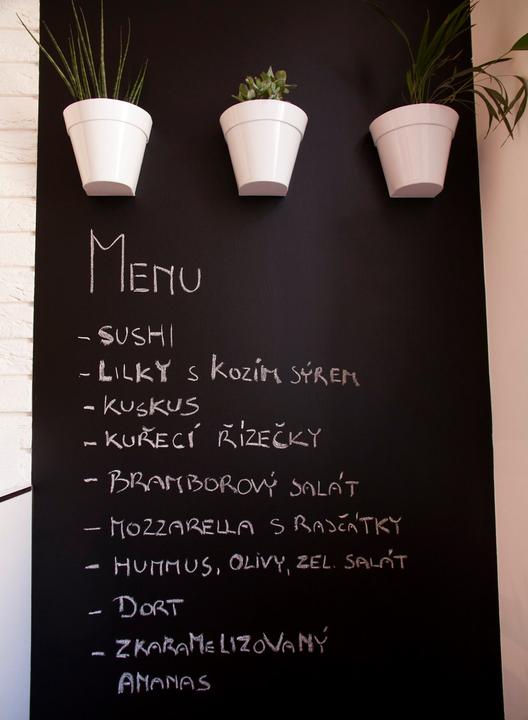 MENU
- SUSHI
- LILKY S KOZÍM SÝREM
- KUSKUS
- KUŘECÍ ŘÍZEČKY
- BRAMBOROVÝ SALÁT
- MOZZARELLA S RAJČÁTKY
- HUMMUS, OLIVY, ZEL. SALÁT
- DORT
- ZKARAMELIZOVANÝ
ANANAS